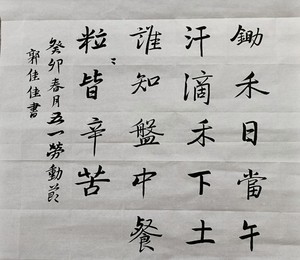 鋤禾日當午
汗滴禾下土
誰知盤中餐
粒〻皆辛苦
癸卯春月五一勞動節
郭佳佳書